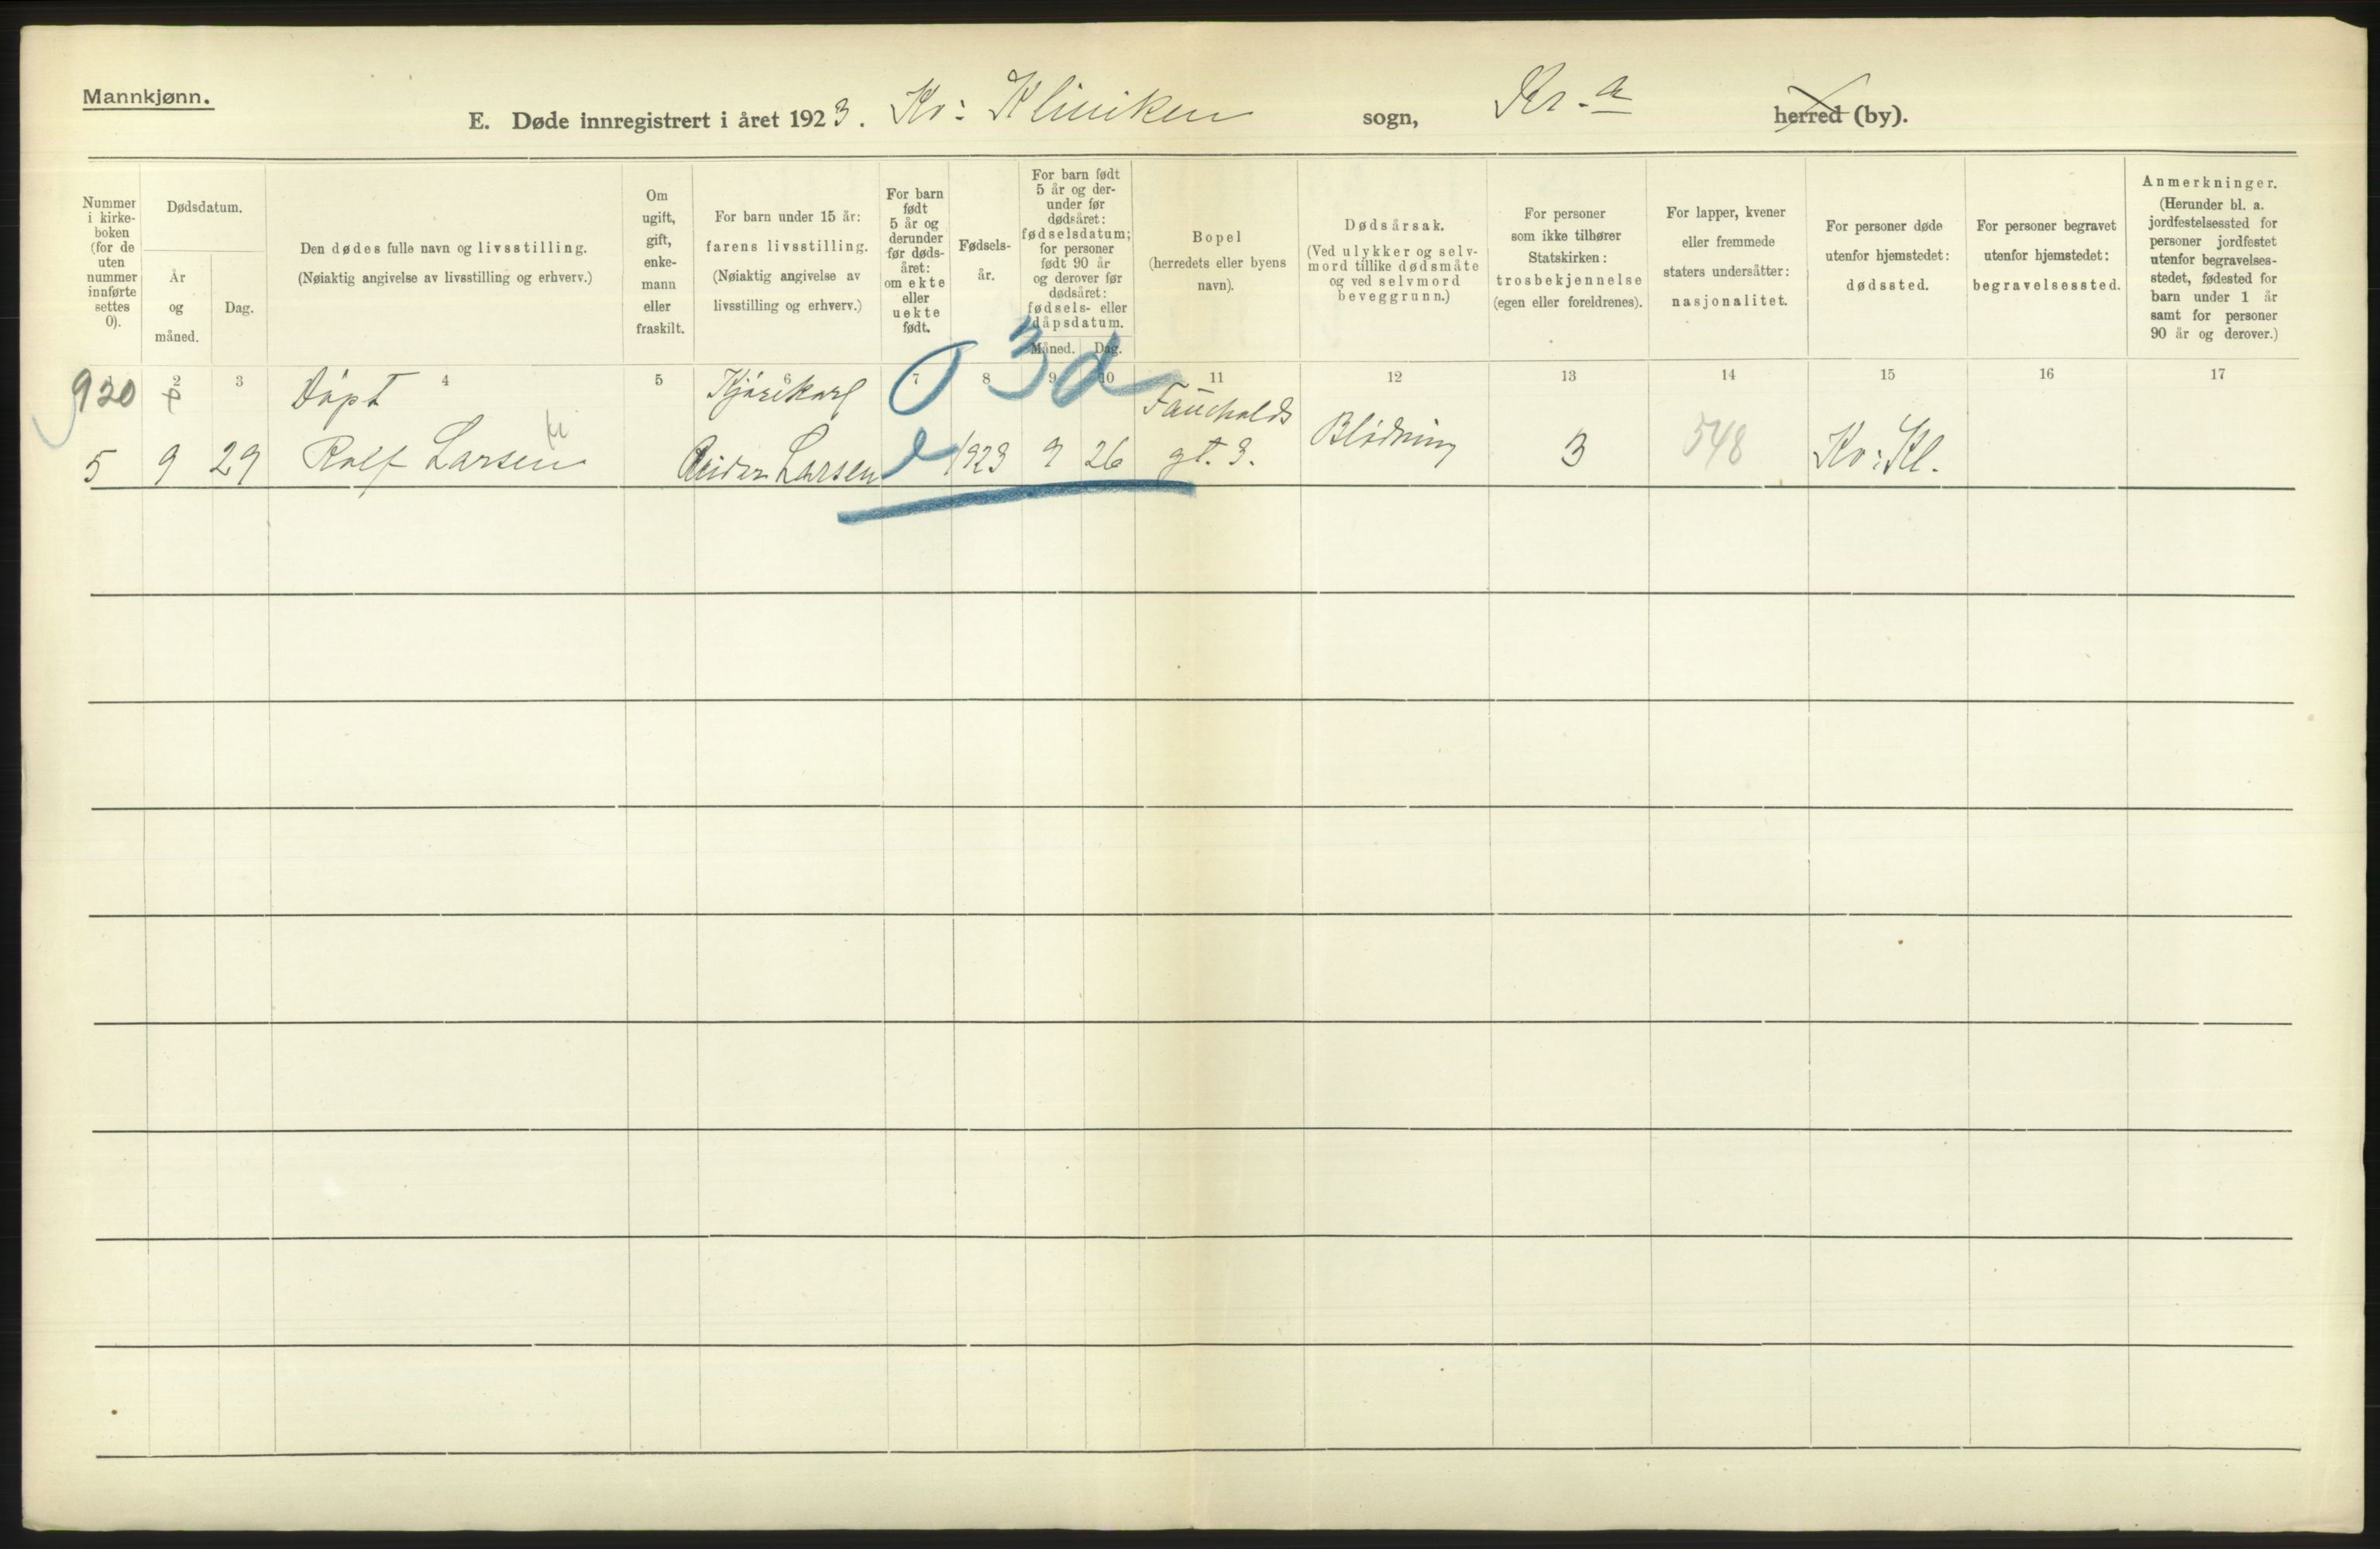 Mannkjønn.
E. Døde innregistrert i året 1923. Kv: Kliniken sogn, Kr.a herred (by).
Nummer
i kirke-
boken
(for de
uten
nummer
innførte
settes
0).
Dødsdatum.
År
og
måned.
Dag.
Den dødes fulle navn og livsstilling.
(Nøiaktig angivelse av livsstilling og erhverv.)
Om
ugift,
gift,
enke-
mann
eller
fraskilt.
For barn under 15 år:
farens livsstilling.
(Nøiaktig angivelse av
livsstilling og erhverv.)
For barn
født
5 år og
derunder
før døds-
året:
om ekte
eller
uekte
født.
Fødsels-
år.
For barn født
5 år og der-
under før
dødsåret:
fødselsdatum;
for personer
født 90 år
og derover før
dødsåret:
fødsels- eller
dåpsdatum.
Måned. Dag.
Bopel
(herredets eller byens
navn).
Dødsårsak.
(Ved ulykker og selv-
mord tillike dødsmåte
og ved selvmord
beveggrunn.)
For personer
som ikke tilhører
Statskirken:
trosbekjennelse
(egen eller foreldrenes).
For lapper, kvener
eller fremmede
staters undersåtter:
nasjonalitet.
For personer døde
utenfor hjemstedet:
dødssted.
For personer begravet
utenfor hjemstedet:
begravelsessted.
Anmerkninger.
(Herunder bl. a.
jordfestelsessted for
personer jordfestet
utenfor begravelses-
stedet, fødested for
barn under 1 år
samt for personer
90 år og derover.)
2 3 4 5 6 7 8 9 10 11 12 13 14 15 16 17
920 Döpt Kjörekarl 0 3d Faucholds
5 9 29 Rolf Larsen Larsen e 1923 9 26 gt. 3. Blödning 3 548 Kv: Kl.